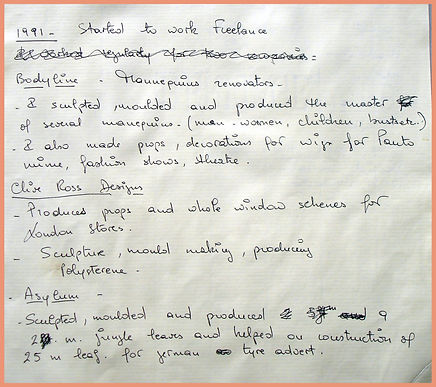 1991 - Started to work Freelance
I worked regularly for two companies:
Bodyline - Mannequins renovators -
- I sculpted, moulded and produced the master
of several manequins. (man. women, children, busts etc.)
- I also made props, decorations for wigs for Panto
mime, fashion shows, theatre.
Clive Ross Designs
- Produced props and whole window schemes for
London Stores.
- Sculpture, mould making, producing
Polysterene.
- Asylum -
- Sculpted, moulded and produced a
2 m. jungle leaves and helped on construction of
25 m leaf. for german tyre advert.